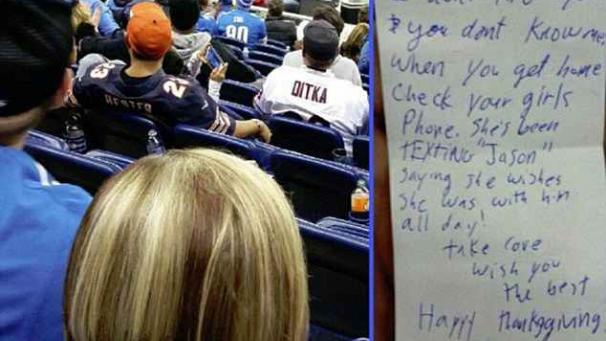 90
HESTER
23
DITKA
& you dont know me
when you get home
Check your girls
Phone. She's been
TEXTING "Jason"
saying she wishes
she was with him
all day!
take care
wish you
the best
Happy thanksgiving